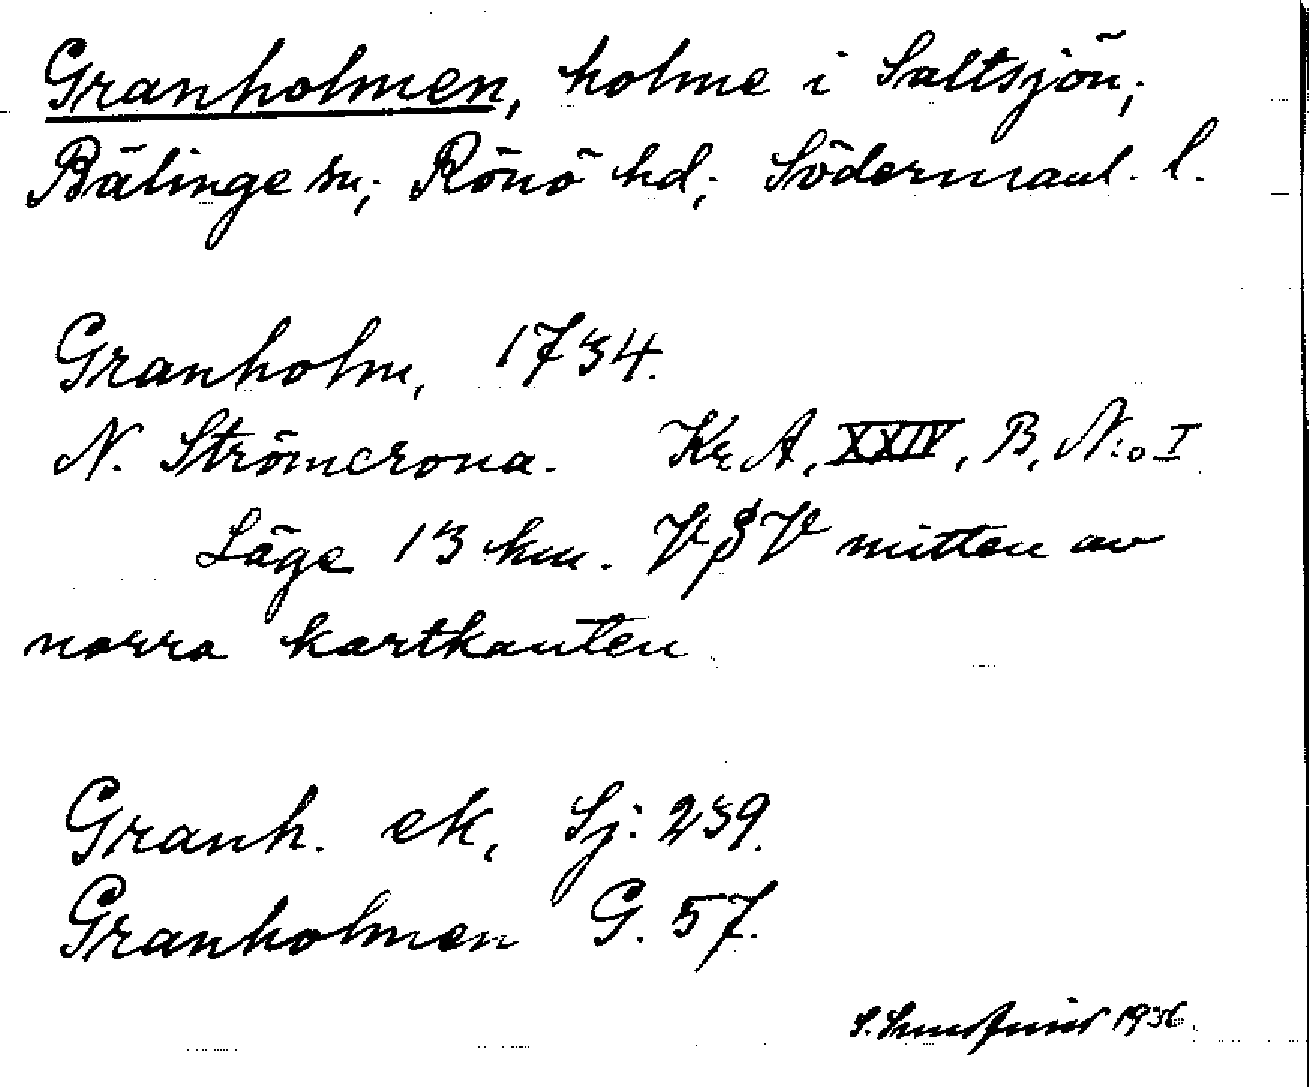 Granholmen, holme i Saltsjön;
Bälinge sn; Rönö hd; Södermanl. l.
Granholm, 1734.
N. Strömcrona. Kr. A, XXIV, B, N:o I
Läge 13 km. V§V mitten av
norra kartkanten.
Granh. ek, Sj: 239.
Granholmen G. 57.
1936.